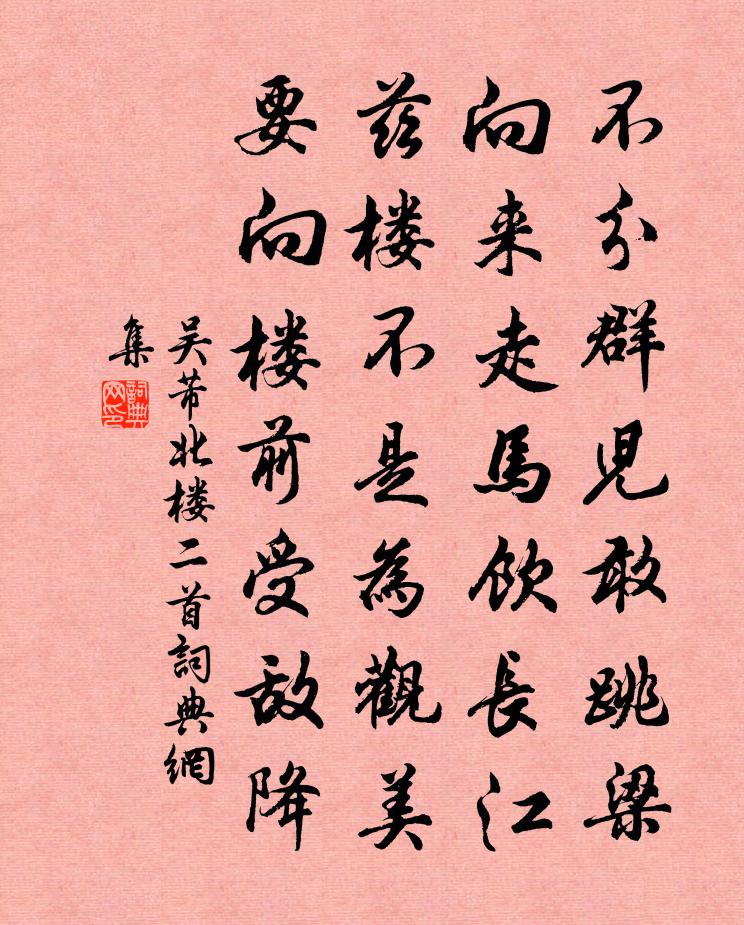 不分群児敢跳梁
向来走馬飲长江
兹楼不是為觀美
要向楼前受敌降
吴芾北楼二首詞典網
集
詞典网印